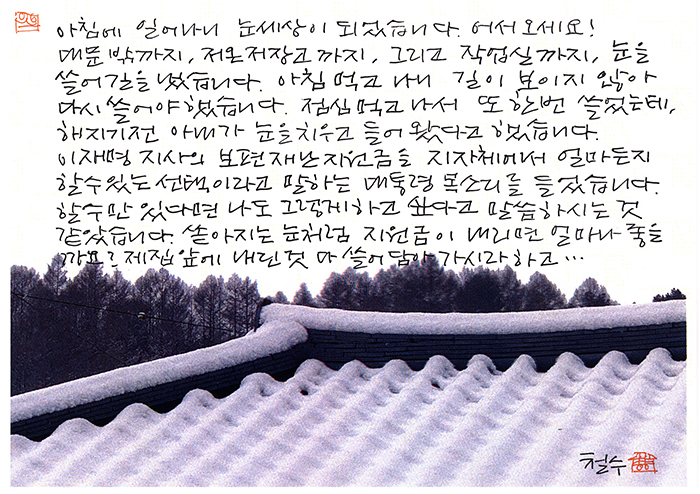 아침에 일어나니 눈세상이 되었습니다. 어서오세요!
대문밖까지, 저온저장고까지, 그리고 작업실까지, 눈을
쓸어 길을 냈습니다. 아침먹고 나니 길이 보이지 않아
다시 쓸어야 했습니다. 점심먹고 나서 또 한번 쓸었는데,
해지기전 아내가 눈을 치우고 들어 왔다고 했습니다.
이재명 지사의 보편재난지원금을 지자체에서 얼마든지
할수있는 선택이라고 말하는 대통령 목소리를 들었습니다.
할수만 있다면 나도 그렇게하고 싶다고 말씀하시는 것
같았습니다. 쏟아지는 눈처럼 지원금이 내리면 얼마나 좋을
까요? 제집앞에 내린것 다 쓸어담아 가시라하고...
철수